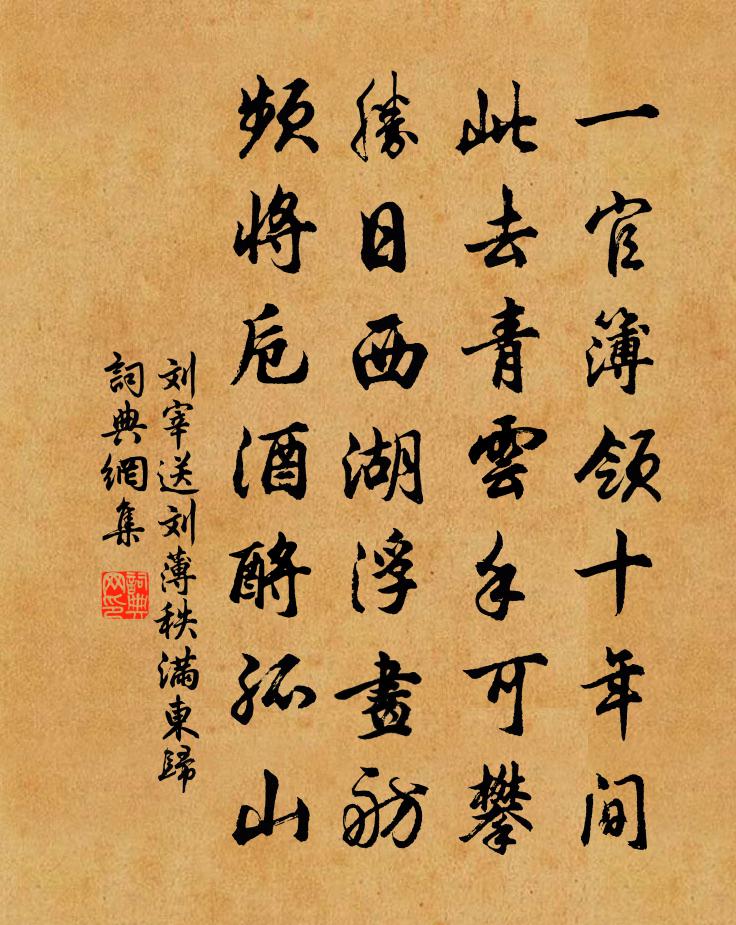 一官簿领十年间
此去青雲手可攀
勝日西湖浮畫舫
頻将卮酒酹孤山
刘宰送刘薄秩满東歸
詞典網集
詞典网印